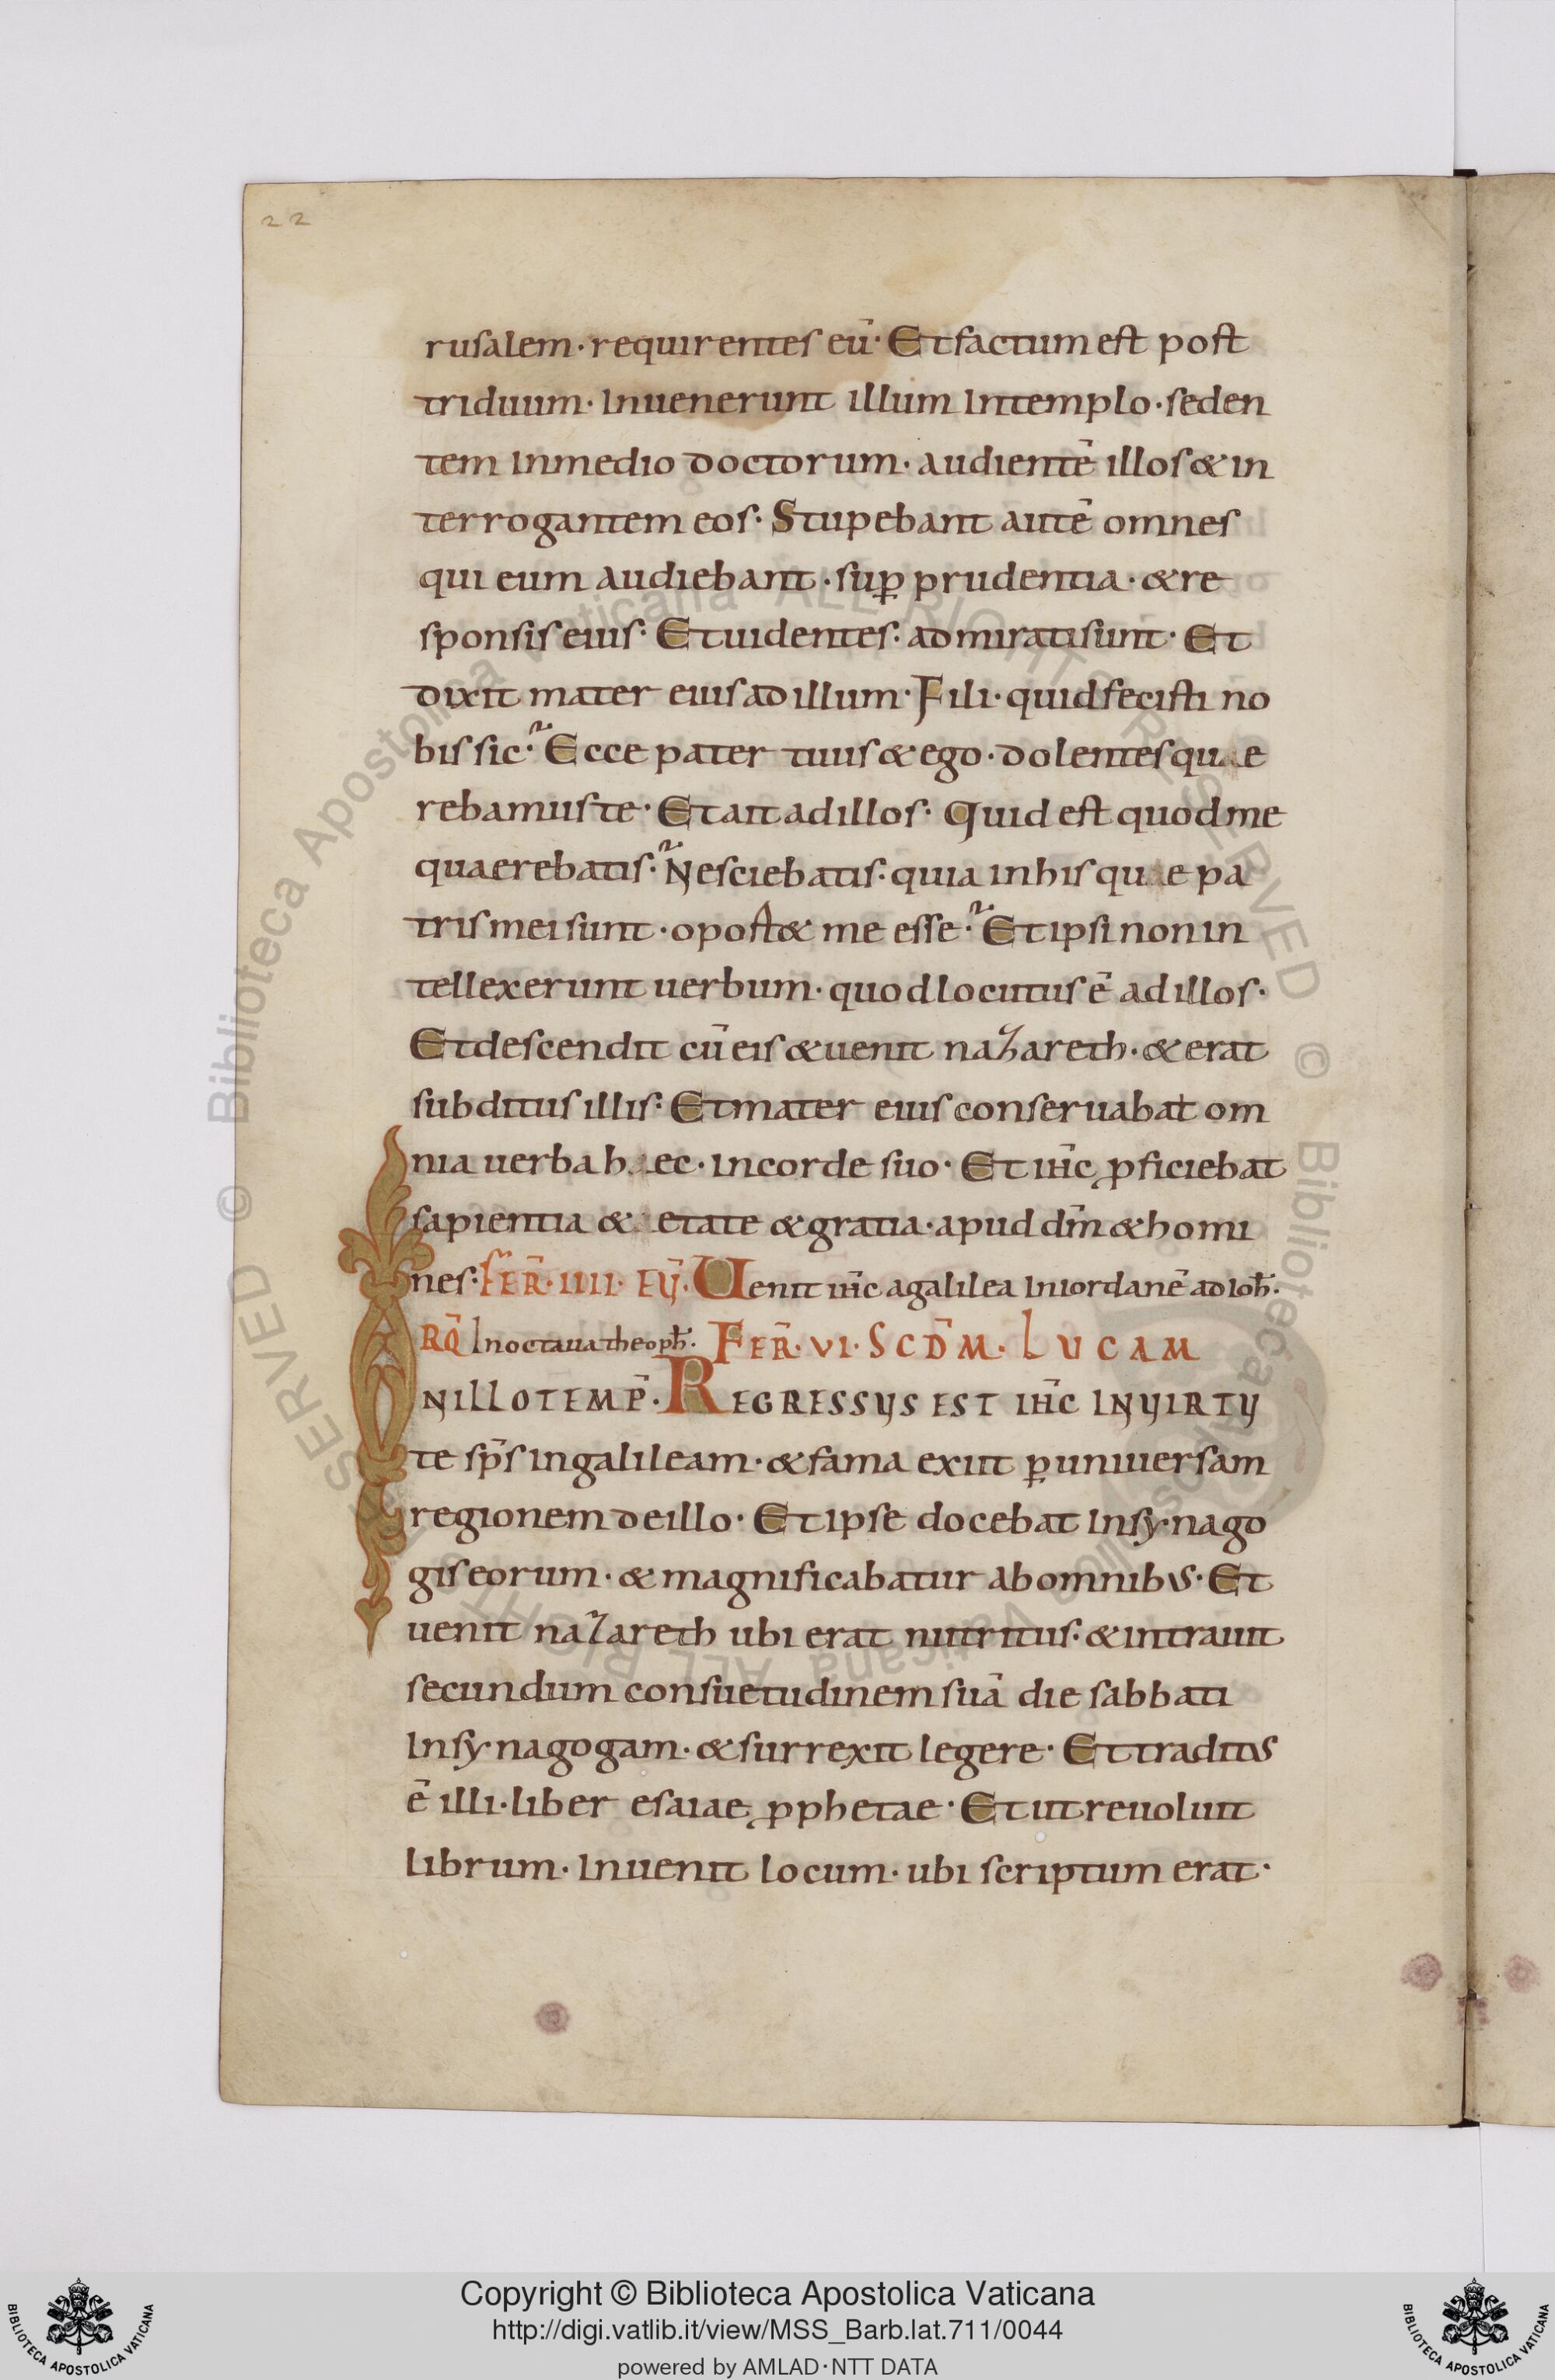 22
rusalem · requirentes eū · Et factum est post
triduum · Inuenerunt illum Intemplo · seden
tem Inmedio doctorum · audientē illos & in
terrogantem eos · Stupebant autē omnes
qui eum audiebant · suꝑ prudentia · & re
sponsis eius · Et uidentes · admirati sunt · Et
dixit mater eius ad illum · Fili · quid fecisti no
bis sic · Ecce pater tuus & ego · dolentes quae
rebamus te · Et ait ad illos · Quid est quod me
quaerebatis · Nesciebatis · quia in his quae pa
tris mei sunt · oport& me esse · Et ipsi non in
tellexerunt uerbum · quod locutus ē ad illos ·
Et descendit cū eis & uenit nazareth · & erat
subditus illis · Et mater eius conseruabat om
nia uerba haec · incorde suo · Et ihc̄ ꝓficiebat
sapientia & etate & gratia · apud dm̄ & homi
nes · FER̄ · IIII · EŪ · Uenit ihc̄ agalilea Iniordanē ad ioh̄ ·
RQ̄ In octaua theoph̄ · FER̄ · VI · SCD̄M · LUCAM
IN ILLO TEMP̄ · REGRESSUS EST IHC̄ IN UIRTU
te sp̄s in galileam · & fama exiit ꝑ uniuersam
regionem de illo · Et ipse docebat Insynago
gis eorum · & magnificabatur ab omnibus · Et
uenit nazareth ubi erat nutritus · & intrauit
secundum consuetudinem suā die sabbati
Insynagogam · & surrexit legere · Et traditus
ē illi · liber esaiae ꝓphetae · Et ut reuoluit
librum · Inuenit locum · ubi scriptum erat ·
© Biblioteca Apostolica Vaticana ALL RIGHTS RESERVED
© Biblioteca Apostolica Vaticana ALL RIGHTS RESERVED
Copyright © Biblioteca Apostolica Vaticana
http://digi.vatlib.it/view/MSS_Barb.lat.711/0044
powered by AMLAD·NTT DATA
BIBLIOTECA APOSTOLICA VATICANA
BIBLIOTECA APOSTOLICA VATICANA